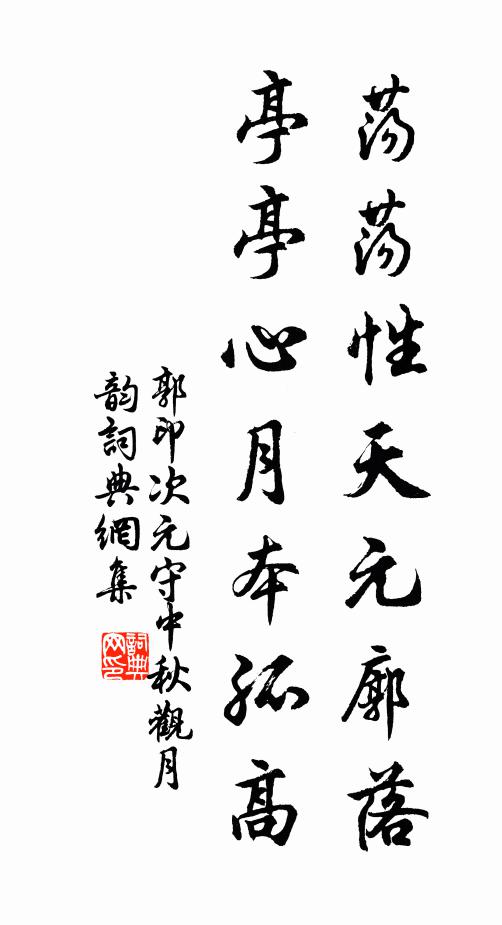 蕩蕩性天元廓落
亭亭心月本孤高
郭印次元守中秋觀月
韵詞典網集
詞典网印